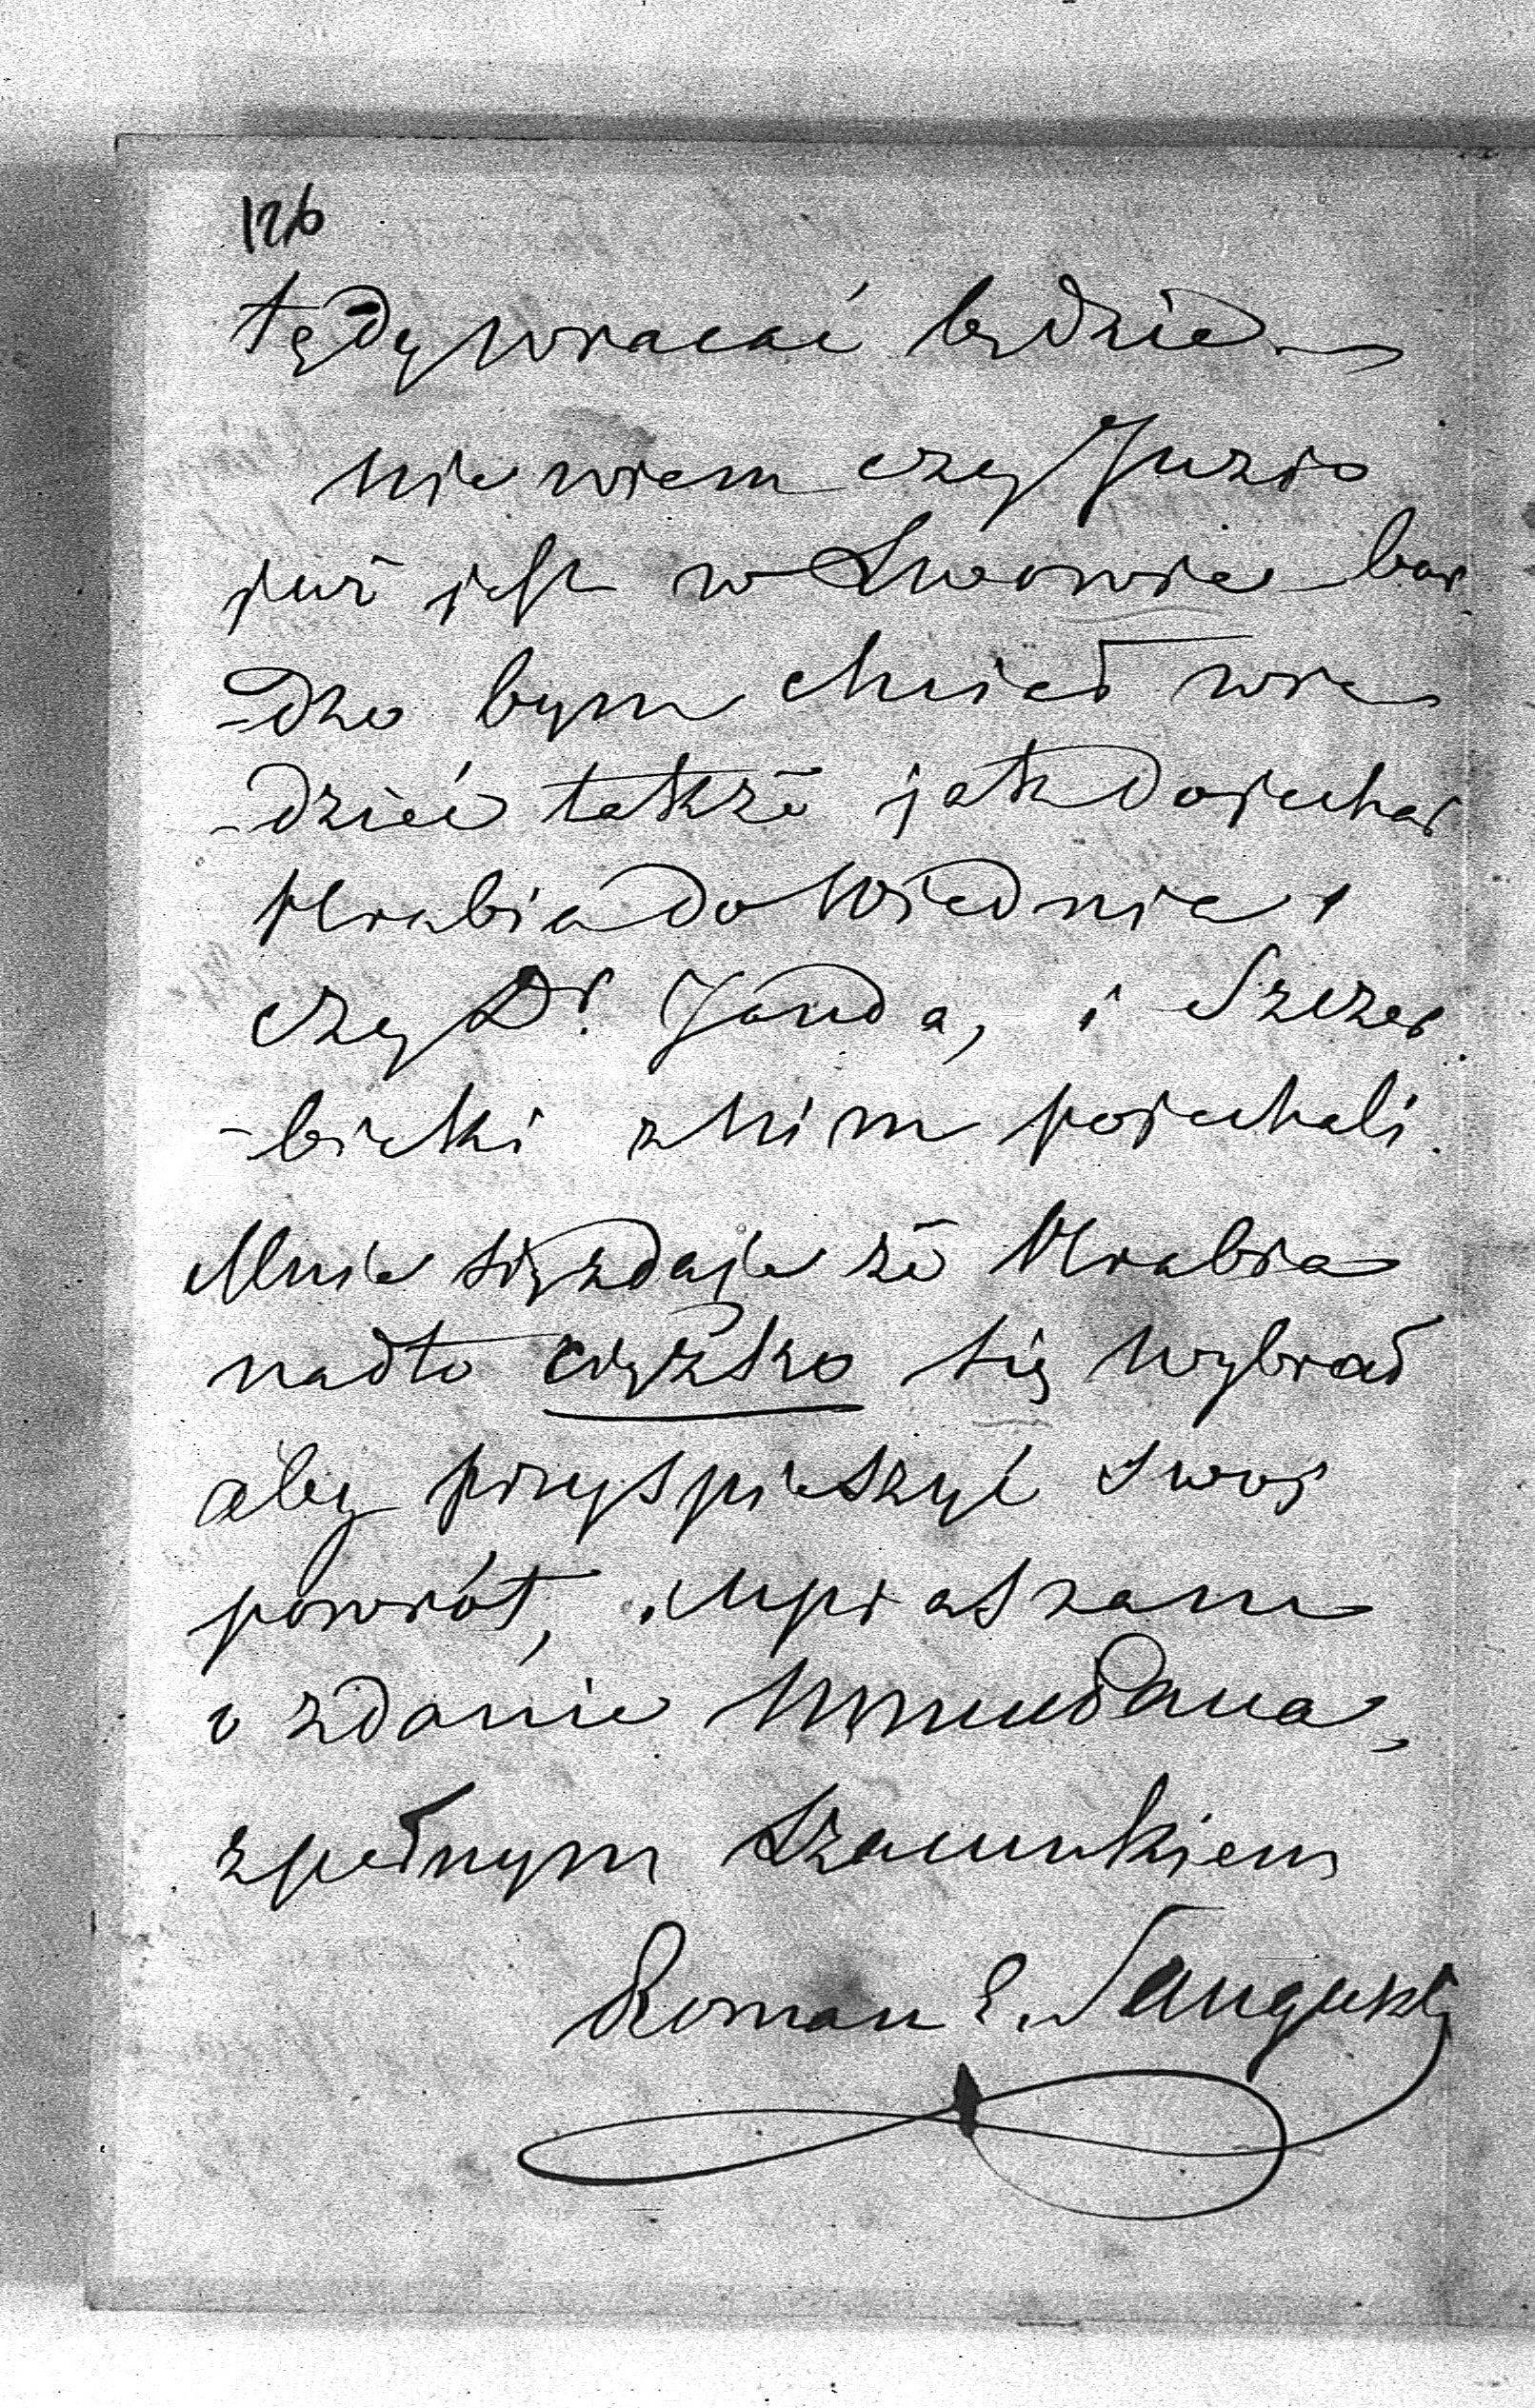 126
tędy wracać będzie
nie wiem czy Juzio
już jest w Lwowie bar
-dzo bym chciał wie
-dzieć także jak dojechał
Hrabia do Wiednia i
czy Dr. Janda, i Szczer
-bicki z nim pojechali.
Mnie się zdaje że Hrabia
nadto ciężko się wybrał
aby przyspieszyć swoj
powrót, upraszam
o zdanie
z pełnym szacunkiem
Roman Sanguszko